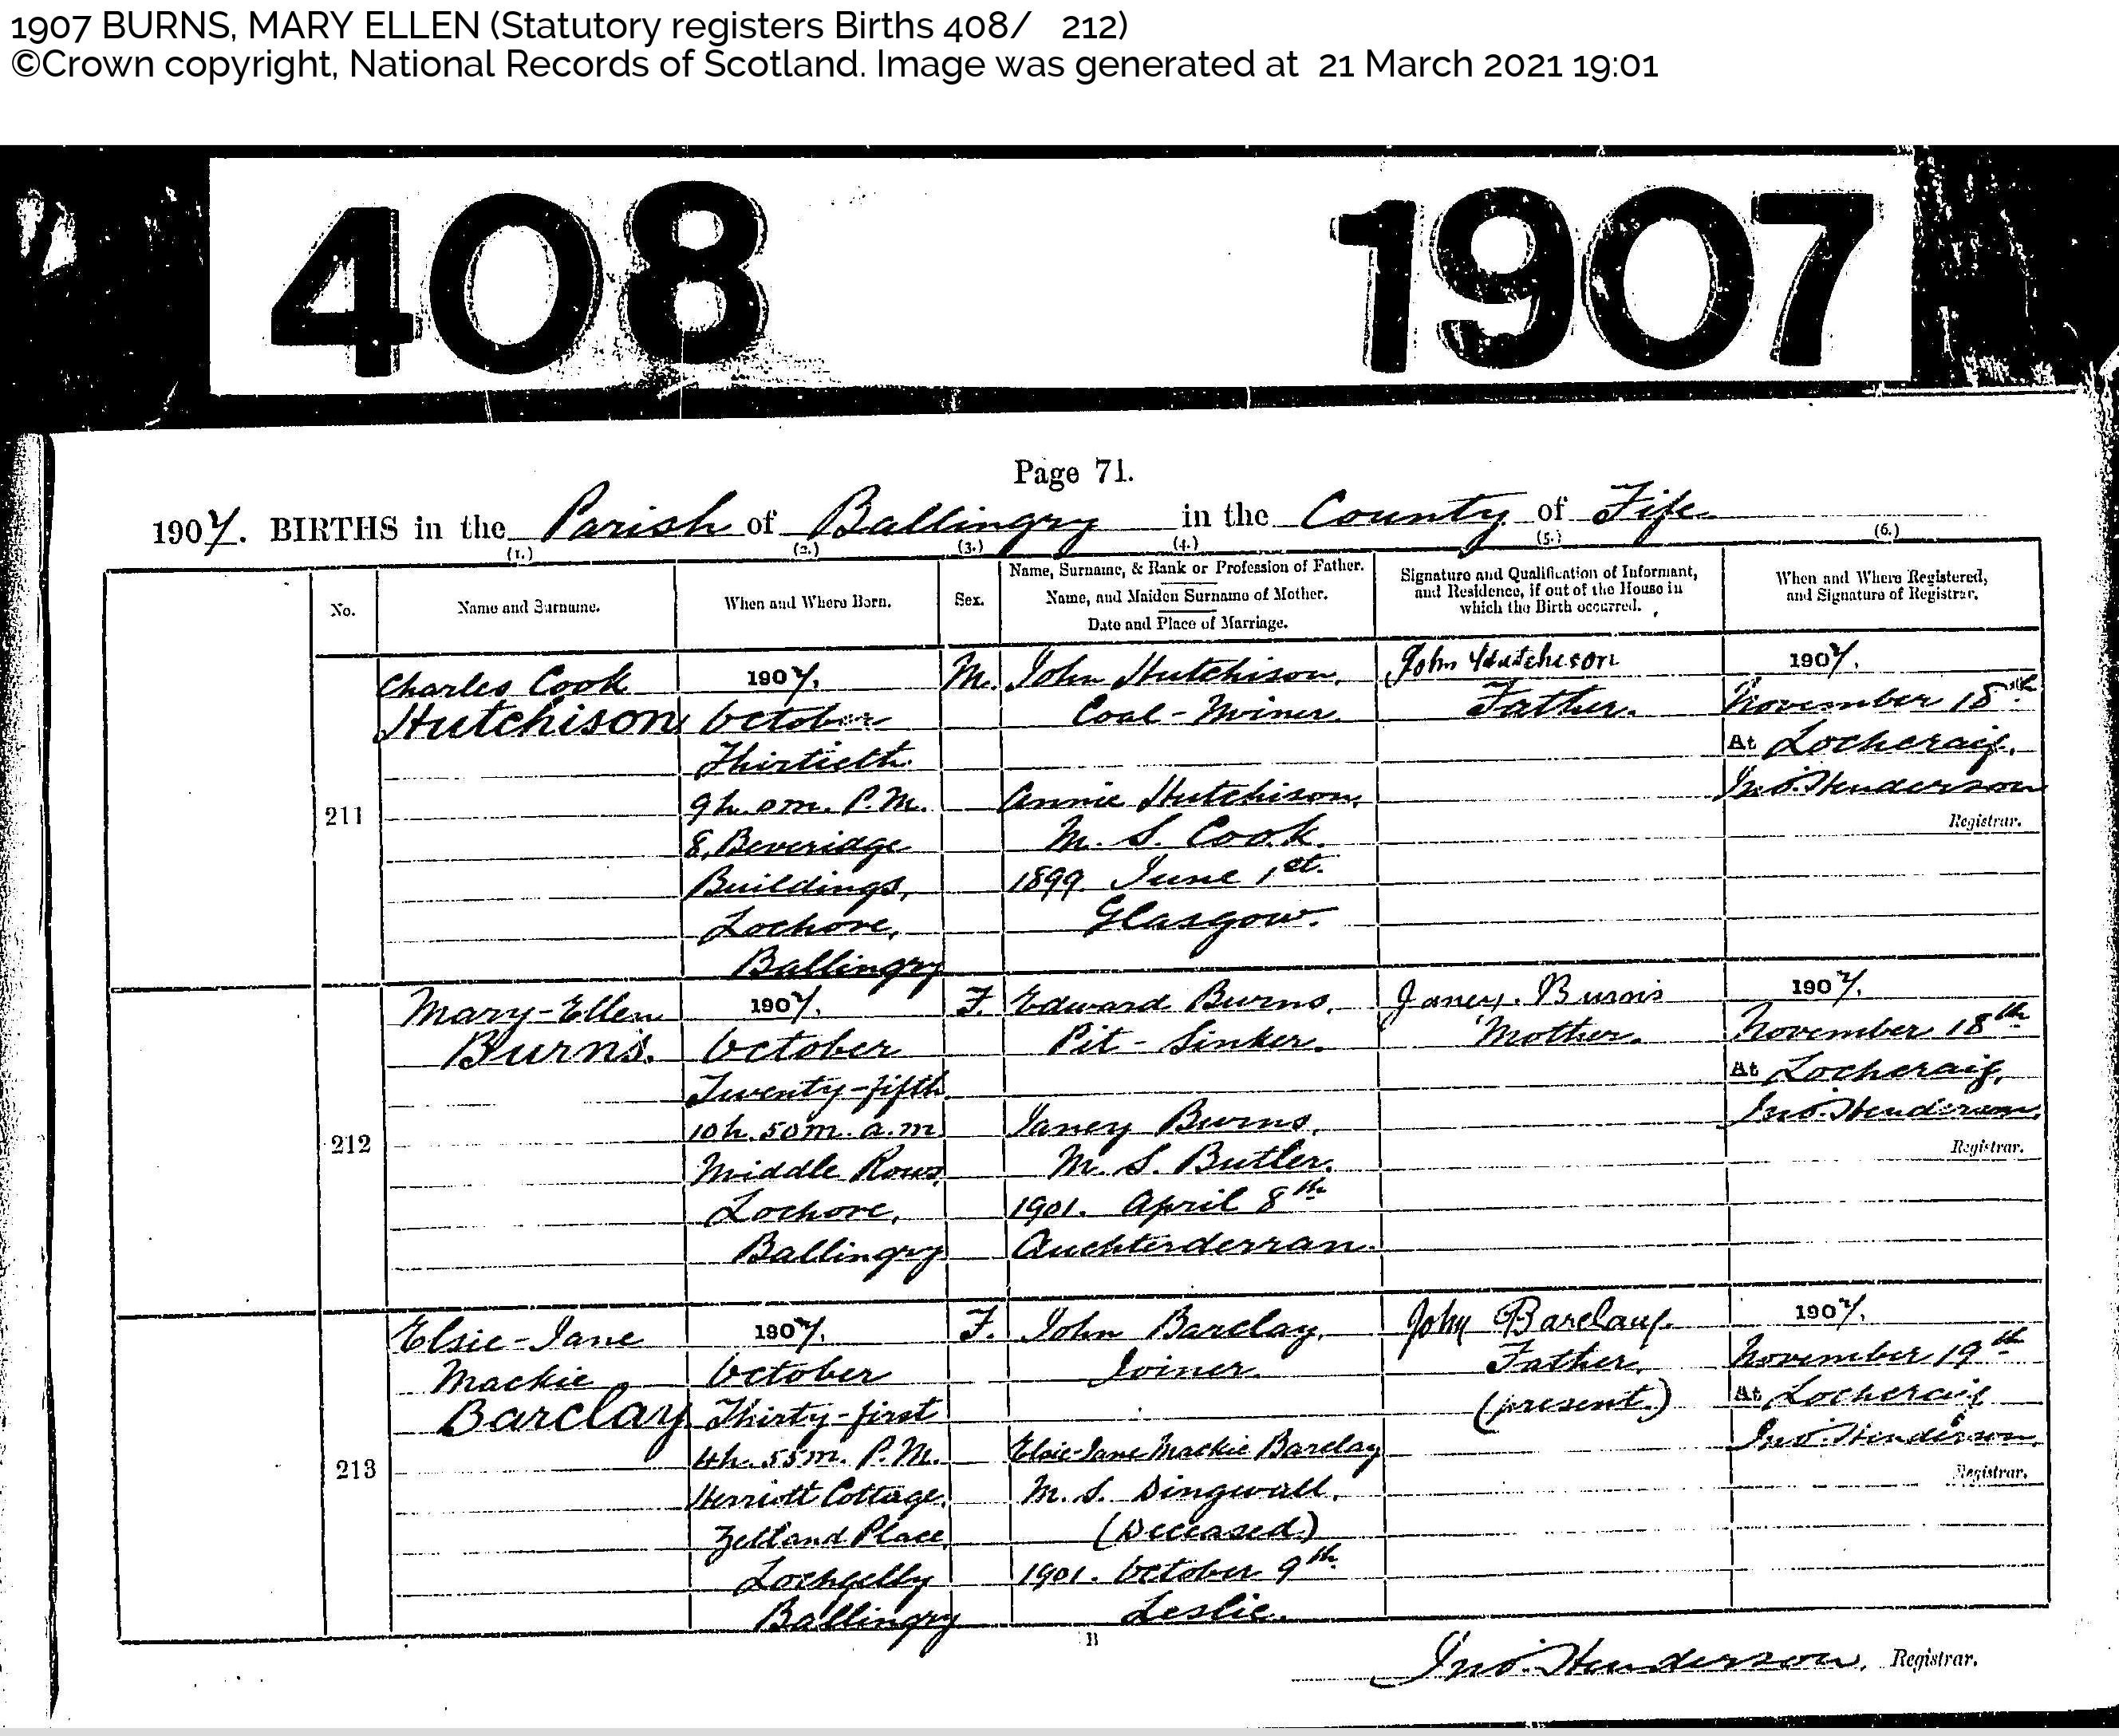 1907 BURNS, MARY ELLEN (Statutory registers Births 408/ 212)
©Crown copyright, National Records of Scotland. Image was generated at 21 March 2021 19:01
408 1907
Page 71.
1907. BIRTHS in the Parish of Ballingry in the County of Fife
(1.) (2.) (3.) (4.) (5.) (6.)
No.
Name and Surname.
When and Where Born.
Sex.
Name, Surname, & Rank or Profession of Father.
Name, and Maiden Surname of Mother.
Date and Place of Marriage.
Signature and Qualification of Informant,
and Residence, if out of the House in
which the Birth occurred.
When and Where Registered,
and Signature of Registrar.
211
Charles Cook
Hutchison
1907,
October
Thirtieth
9h. 0m. P.M.
8, Beveridge
Buildings,
Lochore,
Ballingry
M.
John Hutchison,
Coal-Miner.
Annie Hutchison,
M. S. Cook.
1899. June 1st.
Glasgow.
John Hutcheson
Father.
1907.
November 18th
At Lochcraig.
Jno. Henderson
Registrar.
212
Mary-Ellen
Burns.
1907.
October
Twenty-fifth
10h. 50m. a.m
Middle Rows,
Lochore,
Ballingry
F.
Edward Burns,
Pit-Sinker.
Janey Burns,
M. S. Butler.
1901. April 8th
Auchterderran.
Janey. Burns
Mother.
1907.
November 18th
At Lochcraig,
Jno. Henderson,
Registrar.
213
Elsie-Jane
Mackie
Barclay
1907.
October
Thirty-first
4h. 55m. P.M.
Herriott Cottage,
Zetland Place,
Lochgelly
Ballingry
F.
John Barclay,
Joiner.
Elsie-Jane Mackie Barclay
M. S. Dingwall,
(Deceased)
1901. October 9th
Leslie.
John Barclay.
Father,
(present.)
1907.
November 19th
At Lochcraig
Jno. Henderson,
Registrar.
B
Jno. Henderson, Registrar.